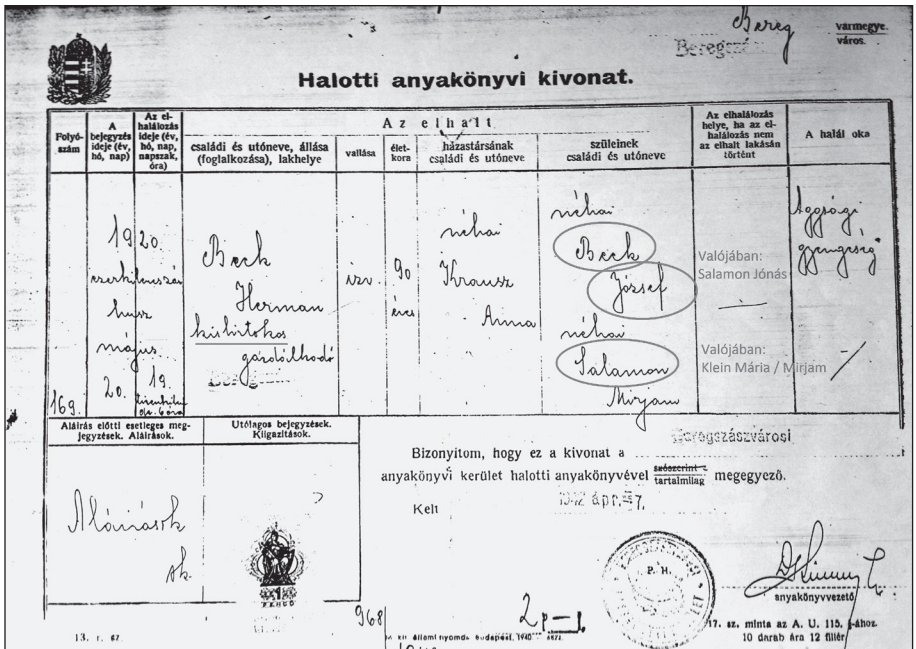 Bereg vármegye.
Beregszász város.
Halotti anyakönyvi kivonat.
Folyó-
szám
A
bejegyzés
ideje (év,
hó, nap)
Az el-
halálozás
ideje (év,
hó, nap,
napszak,
óra)
Az elhalt
családi és utóneve, állása
(foglalkozása), lakhelye
vallása
élet-
kora
házastársának
családi és utóneve
szüleinek
családi és utóneve
Az elhalálozás
helye, ha az el-
halálozás nem
az elhalt lakásán
történt
A halál oka
169.
1920.
ezerkilencszáz
husz
május
20.
19.
Beck
Herman
kisbirtokos
izr.
90
éves
néhai
Krausz
Anna
néhai
Beck
József
néhai
Salamon
Mirjam
Valójában:
Salamon Jónás
Valójában:
Klein Mária / Mirjam
Aggsági
gyengeség
Aláírás előtti esetleges meg-
jegyzések. Aláírások.
Utólagos bejegyzések.
Kiigazítások.
Aláírások
sk.
Bizonyitom, hogy ez a kivonat a Beregszászvárosi
anyakönyvi kerület halotti anyakönyvével szószerint tartalmilag megegyező.
Kelt 1942 ápr. 7.
P. H.
anyakönyvvezető
1
PENGŐ
968
2 p
13. r. sz.
M. kir. állami nyomda Budapest, 1940
17. sz. minta az A. U. 115. §-ához.
10 darab ára 12 fillér